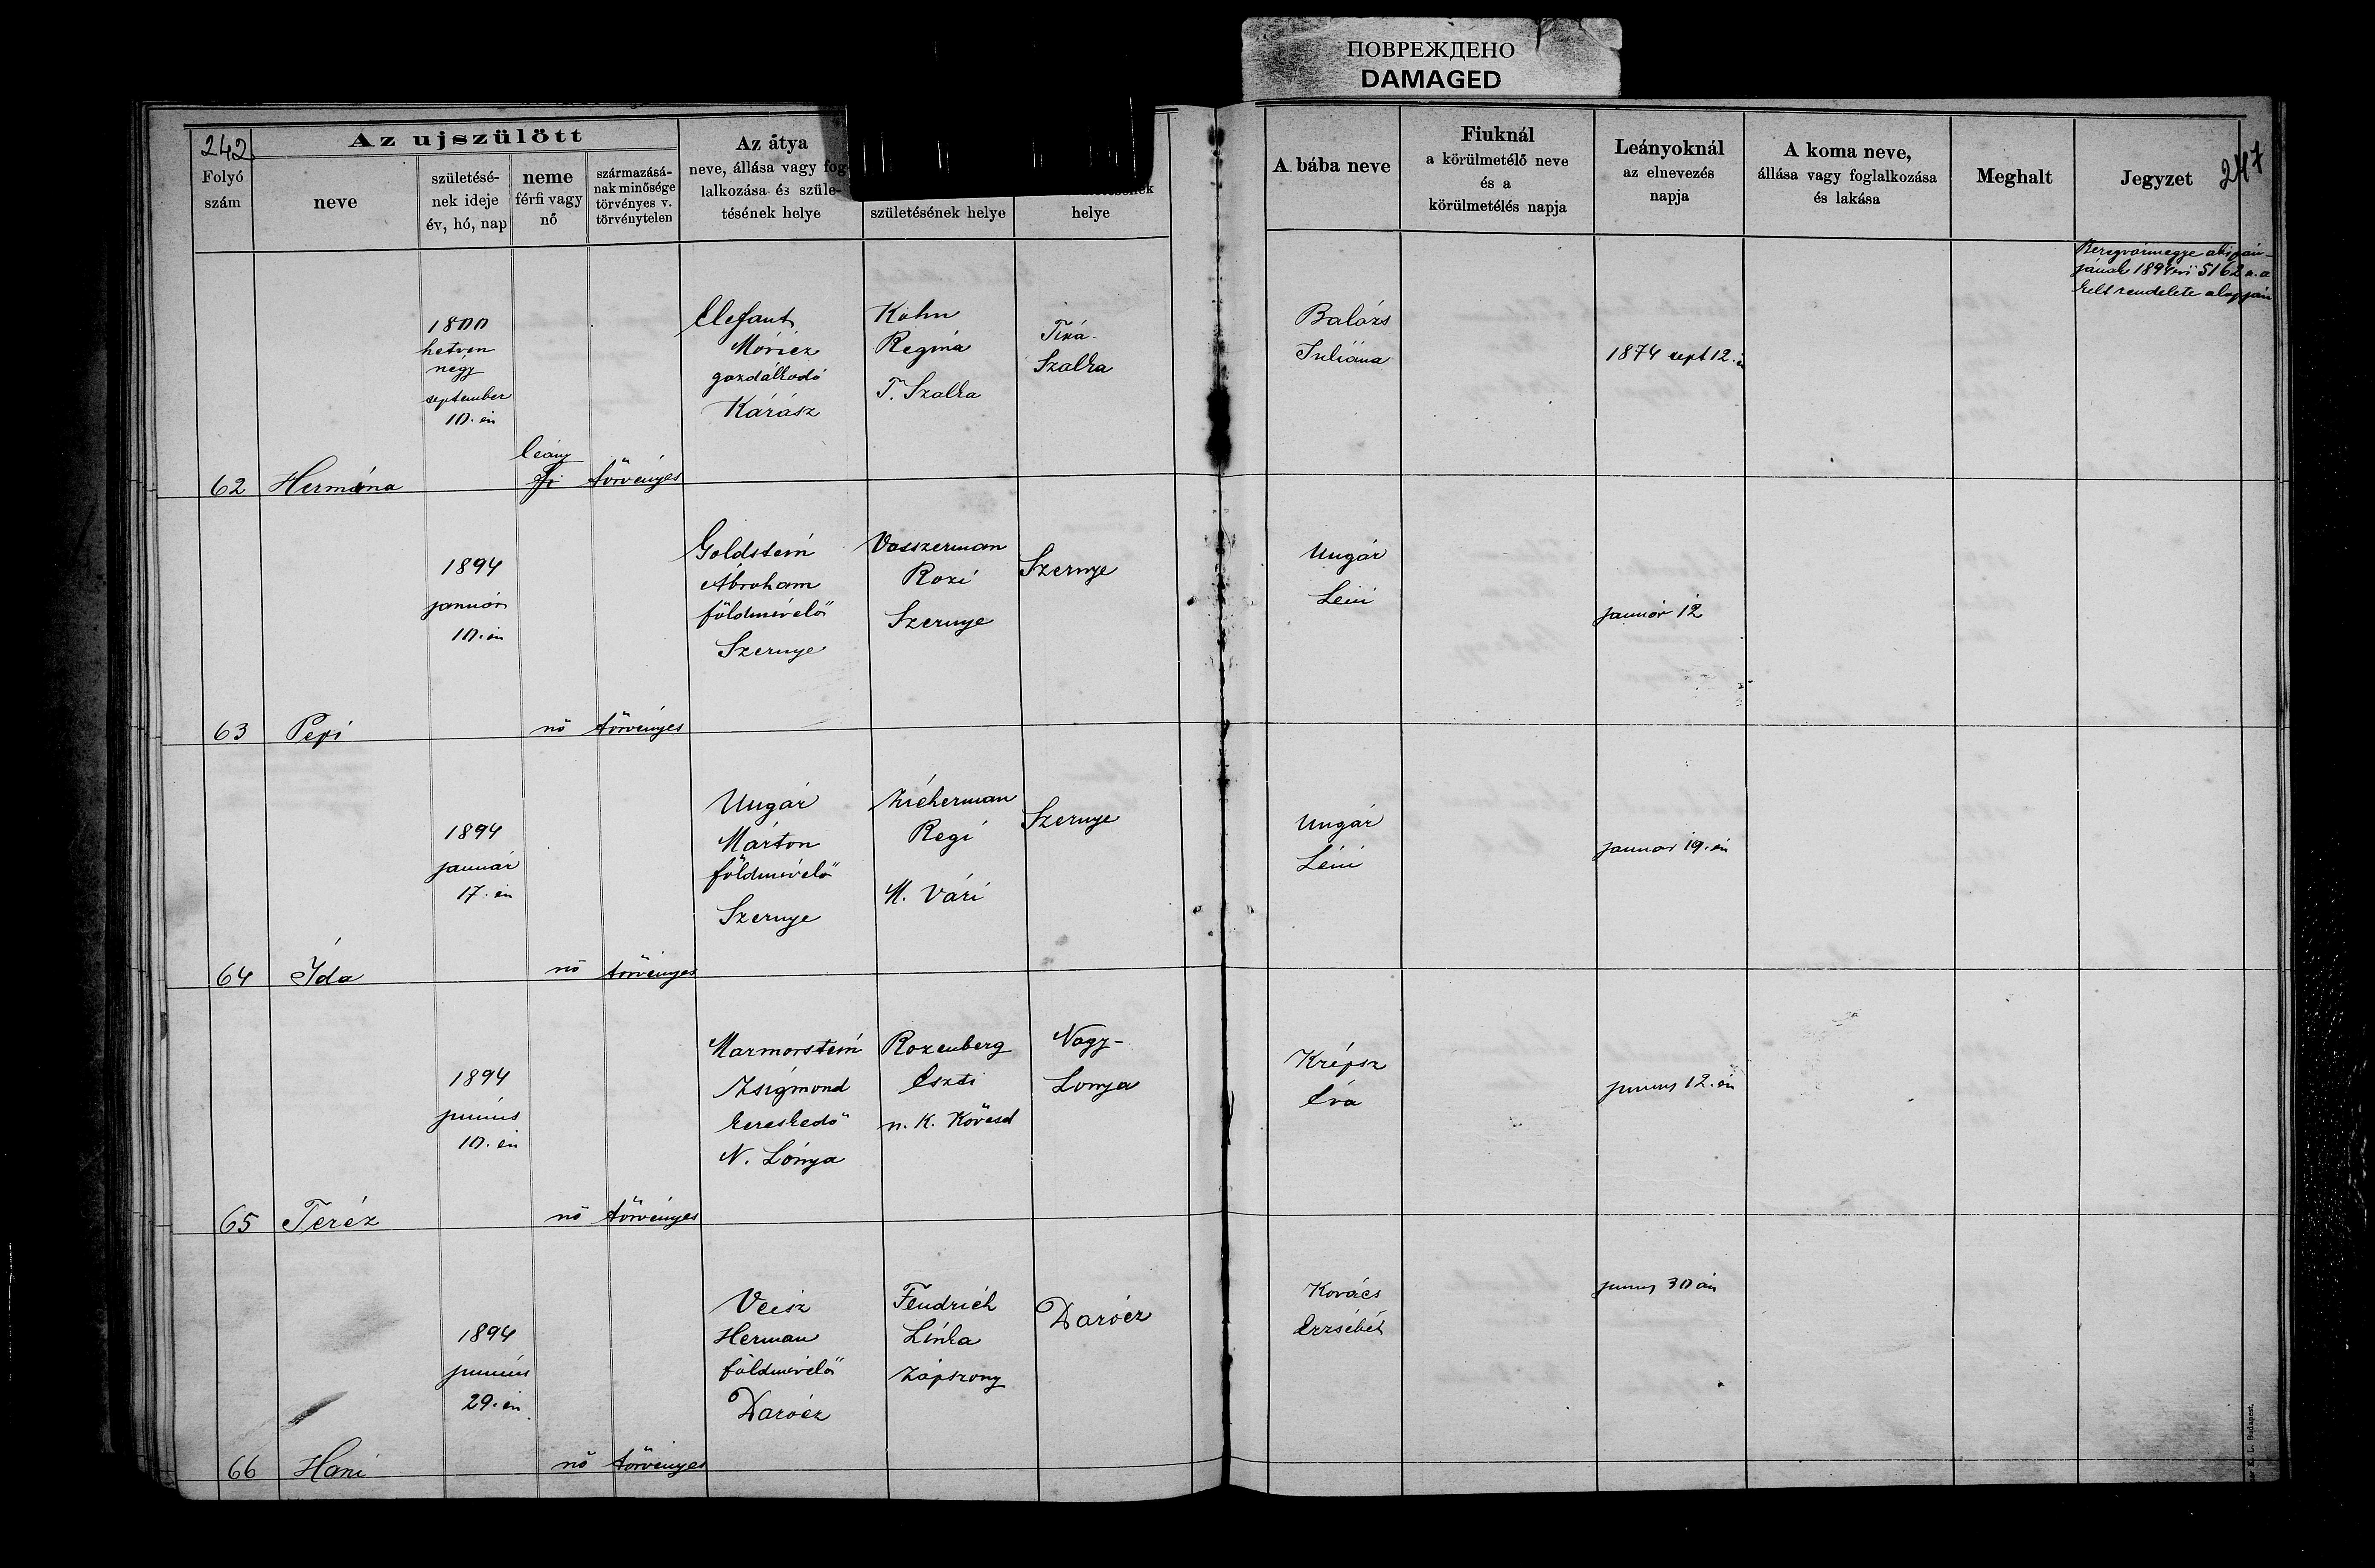 ПОВРЕЖДЕНО
DAMAGED
242
Az ujszülött
Folyó szám
neve
születésé-
nek ideje
év, hó, nap
neme
férfi vagy
nő
származásá-
nak minősége
törvényes v.
törvénytelen
Az átya
neve, állása vagy fog-
lalkozása és szüle-
tésének helye
születésének helye
helye
A bába neve
Fiuknál
a körülmetélő neve
és a
körülmetélés napja
Leányoknál
az elnevezés
napja
A koma neve,
állása vagy foglalkozása
és lakása
Meghalt
Jegyzet
247
62
Hermina
1800
hetven
négy
september
10. én
leány
fi
törvényes
Elefant
Móricz
gazdálkodó
Kárász
Kohn
Regina
T. Szalka
Tisza
Szalka
Balázs
Juliána
1874 sept 12. én
Beregvármegye alispán-
jának 1894 évi 5162 a. a
kelt rendelete alapján
63
Pepi
1894
január
10. én
nő
törvényes
Goldstein
Ábraham
földmivelő
Szernye
Vasszerman
Rozi
Szernye
Szernye
Ungár
Leni
január 12
64
Ida
1894
január
17. én
nő
törvényes
Ungár
Márton
földmivelő
Szernye
Zicherman
Regi
M. Vári
Szernye
Ungár
Léni
január 19. én
65
Teréz
1894
junius
10. én
nő
törvényes
Marmorstein
Zsigmond
kereskedő
N. Lónya
Rozenberg
Eszti
n. K. Kövesd
Nagy-
Lonya
Krépsz
Éva
junius 12. én
66
Hani
1894
junius
29. én
nő
törvényes
Veisz
Herman
földmivelő
Darócz
Fendrich
Linka
Zápszony
Darócz
Kovács
Erzsébét
junius 30 án
K. L. Budapest.